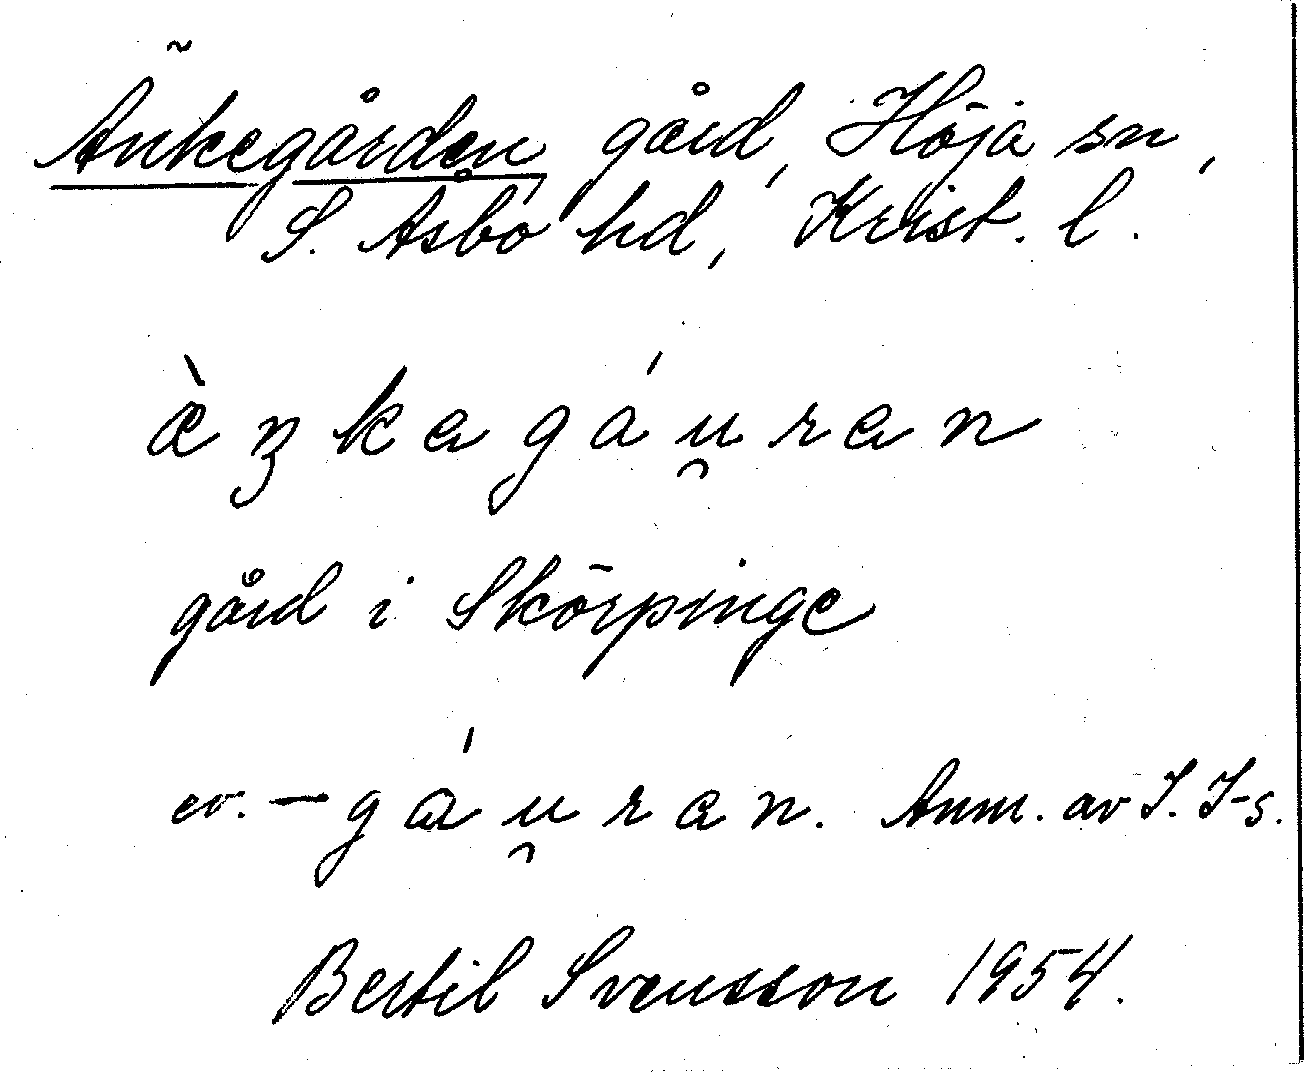 Änkegården gård, Höja sn,
S. Åsbo hd, Krist. l.
æ̀ŋkagáu̯ran
gård i Skörpinge
ev. – gáu̯ran. Anm. av I. I-s.
Bertil Svensson 1954.